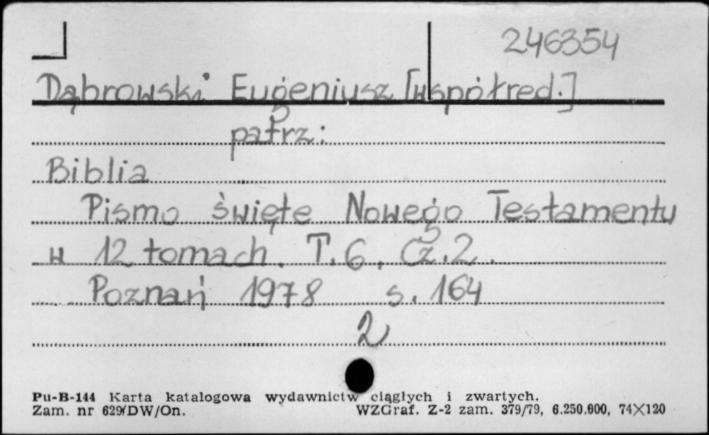 246354
Dąbrowski Eugeniusz [współred.]
patrz:
Biblia
Pismo święte Nowego Testamentu
w 12 tomach. T. 6. Cz. 2.
Poznań 1978 s. 164
2
Pu-B-144 Karta katalogowa wydawnictw ciągłych i zwartych.
Zam. nr 629/DW/On. WZGraf. Z-2 zam. 379/79, 6.250.000, 74×120